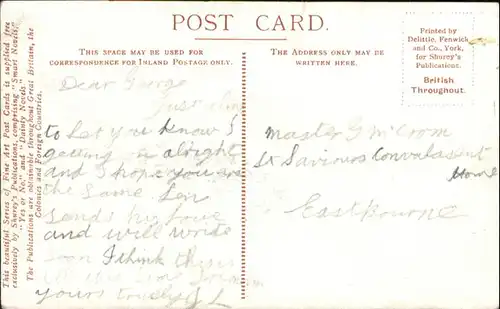 POST CARD.
THIS SPACE MAY BE USED FOR
CORRESPONDENCE FOR INLAND POSTAGE ONLY.
THE ADDRESS ONLY MAY BE
WRITTEN HERE.
Printed by
Delittle, Fenwick
and Co., York,
for Shurey's
Publications.
British
Throughout.
This beautiful Series of Fine Art Post Cards is supplied free
exclusively by Shurey's Publications, comprising "Smart Novels,"
"Yes or No," and "Dainty Novels."
The Publications are obtainable throughout Great Britain, the
Colonies and Foreign Countries.
Dear George
Just
to let you know I
getting alright
and I hope you are
the same Len
sends his love
and will write
soon I think this
is all
yours truly J L
Master G McCrom
St Saviours Convalescent
Home
Eastbourne